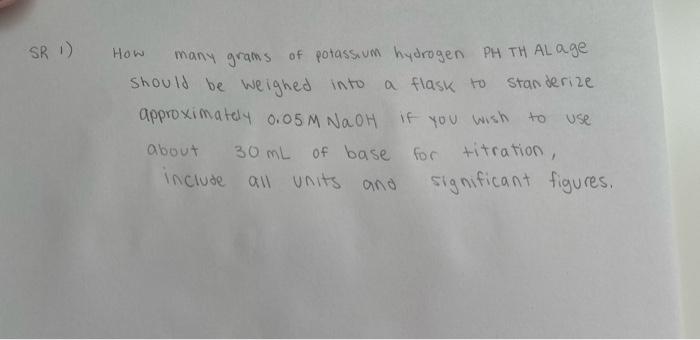 SR 1) How many grams of potassium hydrogen PH TH ALage
should be weighed into a flask to standerize
approximately 0.05M NaOH if you wish to use
about 30 mL of base for titration,
include all units and significant figures.